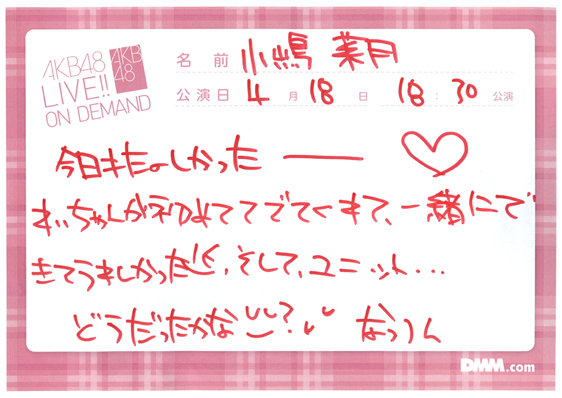 AKB48
LIVE!!
ON DEMAND
AKB
48
名前 小嶋 菜月
公演日 4月18日 18:30公演
今日もたのしかったーー♡
れいちゃんが初めてでてくれて、一緒にで
きてうれしかった、そして、ユニット...
どうだったかな?
なっつん
DMM.com